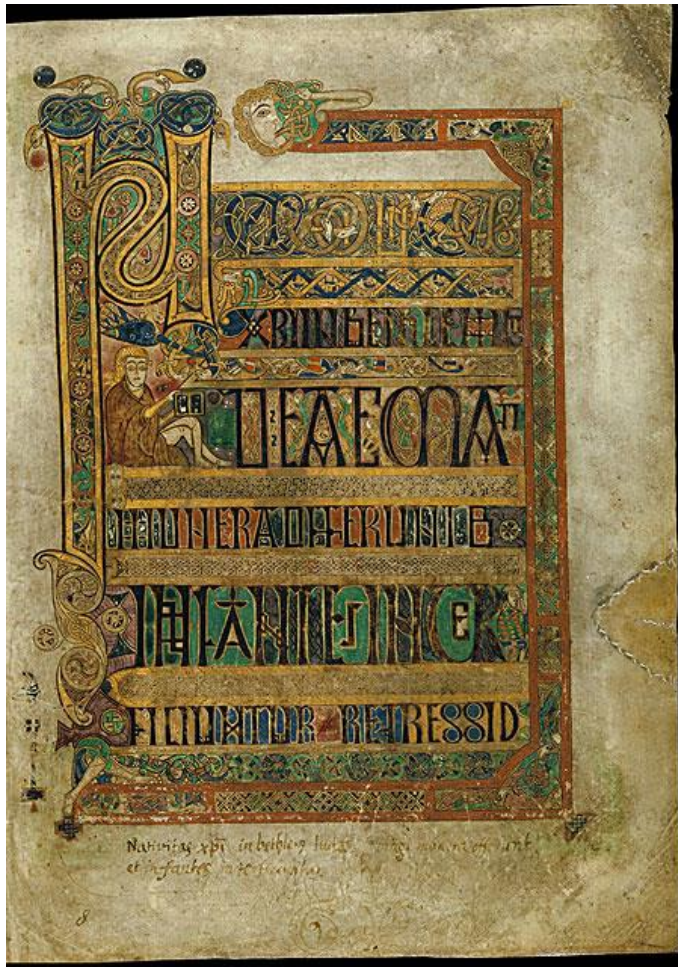 NATIVITAS
XPI IN BETHLEM
DEAE MA
MUNERA OFFERUNT
INFANTES INTER
FICIUNTUR REGRESSIO
Nativitas xpi in bethlem magi munera offerunt
et infantes interficiuntur
8